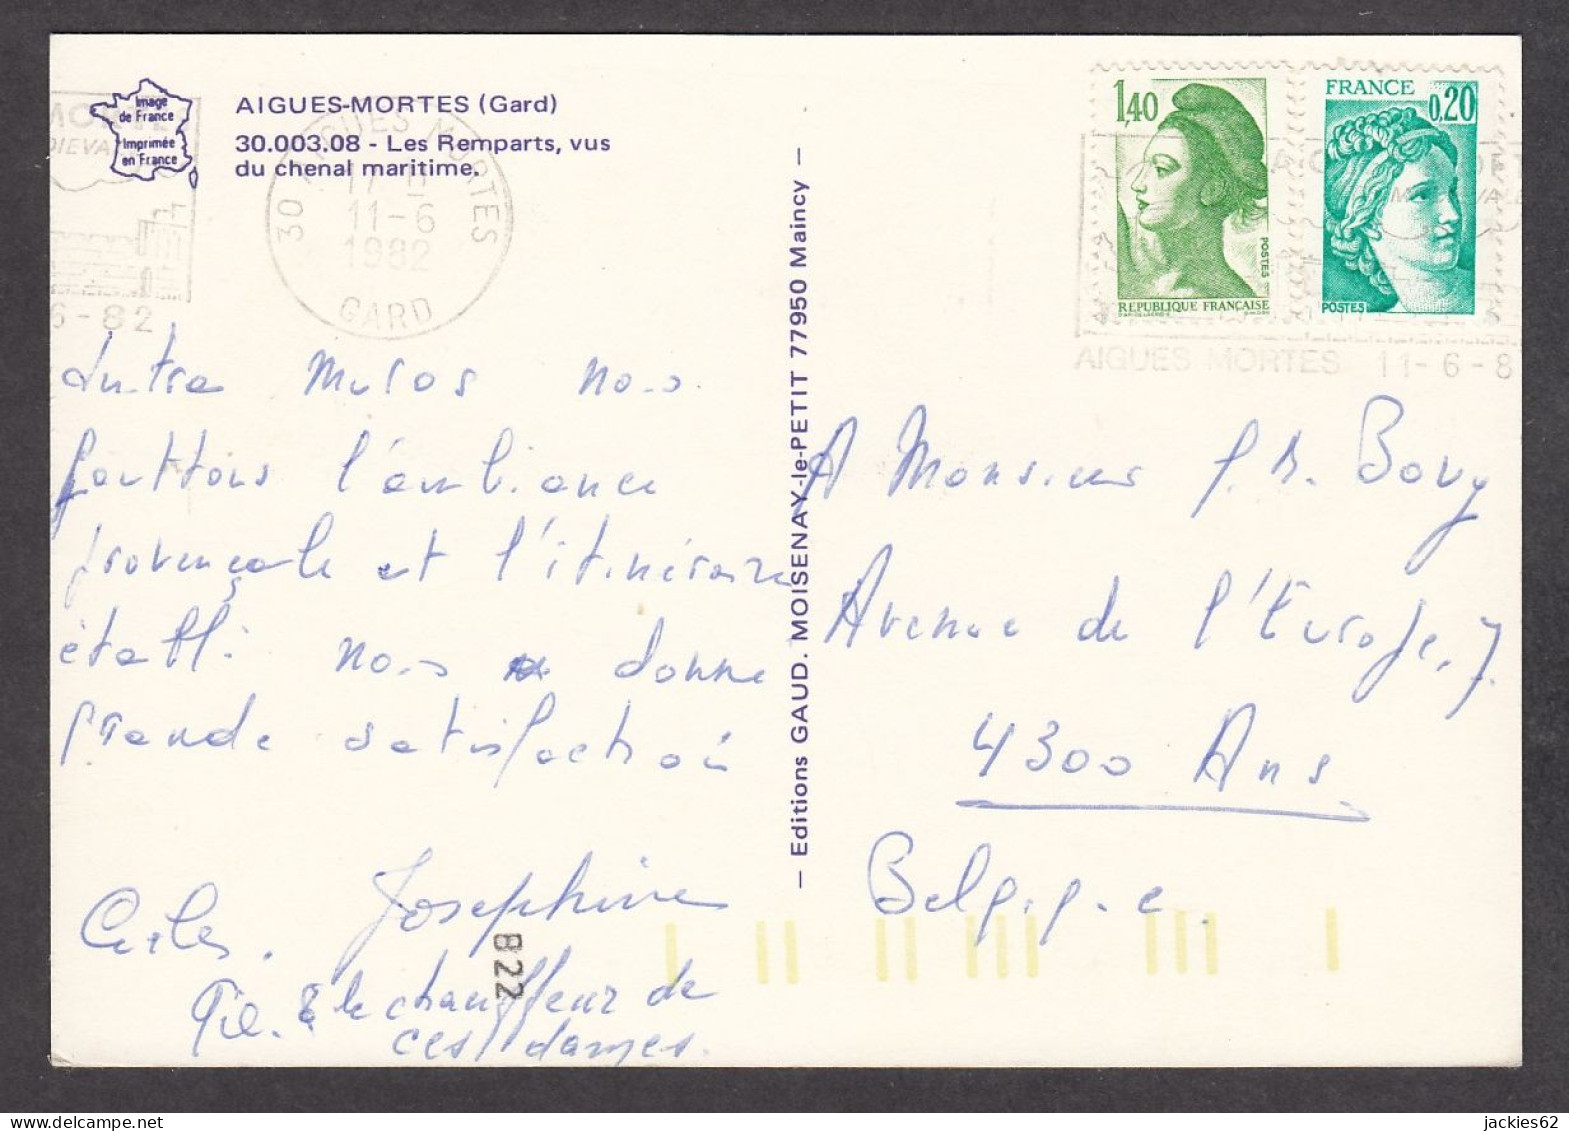 Image
de France
Imprimée
en France
AIGUES-MORTES (Gard)
30.003.08 - Les Remparts, vus
du chenal maritime.
30 AIGUES MORTES
11-6
1982
GARD
6-82
1,40
POSTES
REPUBLIQUE FRANÇAISE
FRANCE
0,20
POSTES
AIGUES MORTES 11-6-8
Intra Muros nous
goûtons l'ambiance
provençale et l'itinéraire
établi nous donne
grande satisfaction
Josephine
le chauffeur de
ces dames.
B22
— Editions GAUD. MOISENAY-le-PETIT 77950 Maincy —
A Monsieur J. N. Bovy
Avenue de l'Europe, 7
4300 Ans
Belgique
jackies62